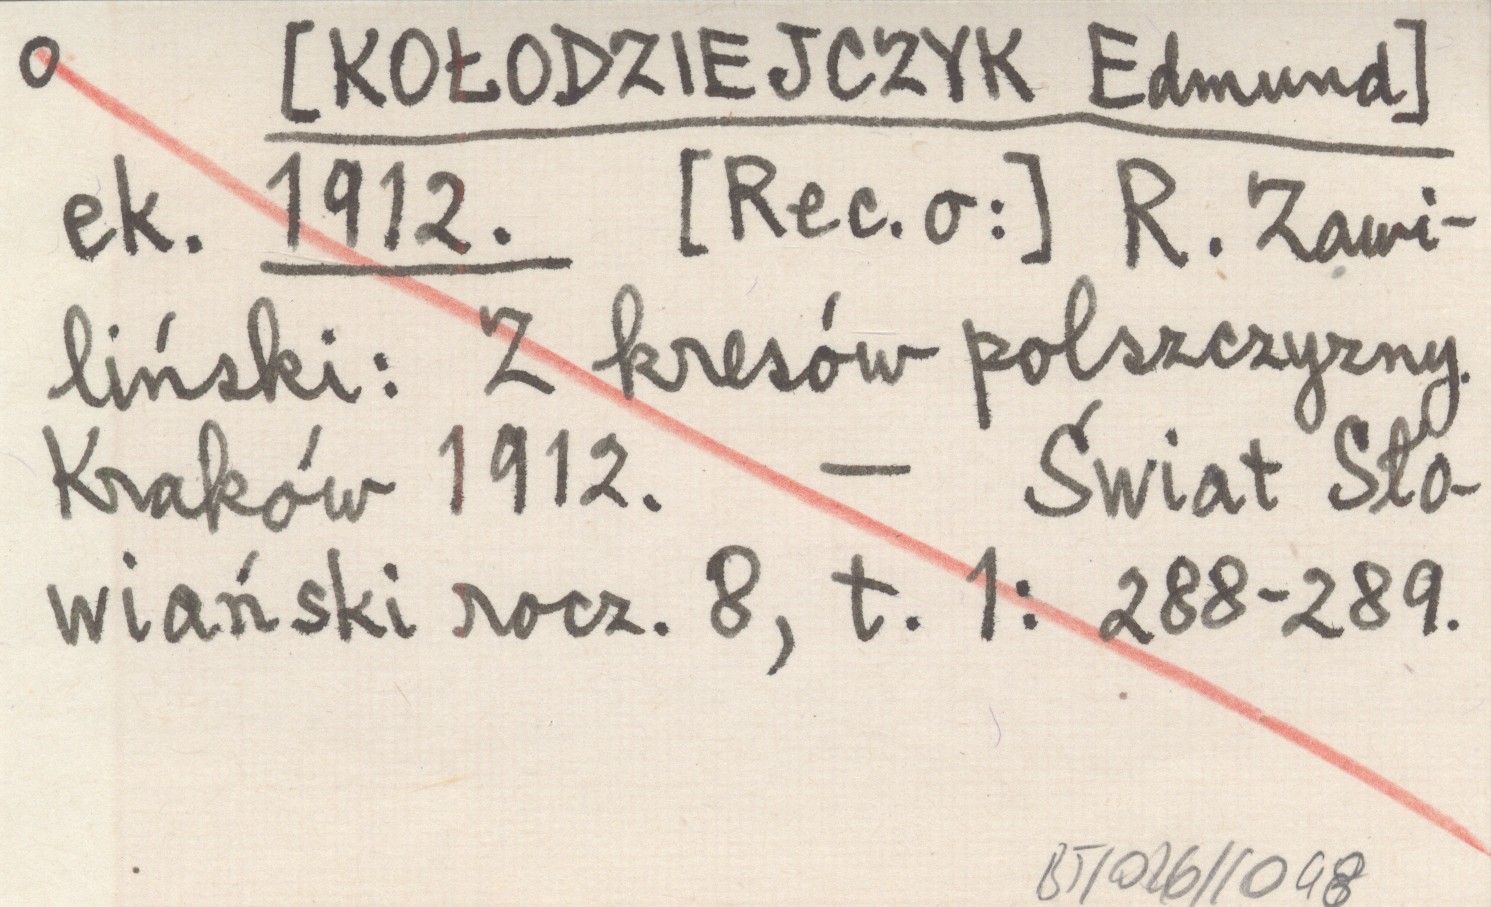 o [KOŁODZIEJCZYK Edmund]
ek. 1912. [Rec. o:] R. Zawi-
liński: Z kresów polszczyzny.
Kraków 1912. — Świat Sło-
wiański rocz. 8, t. 1: 288-289.